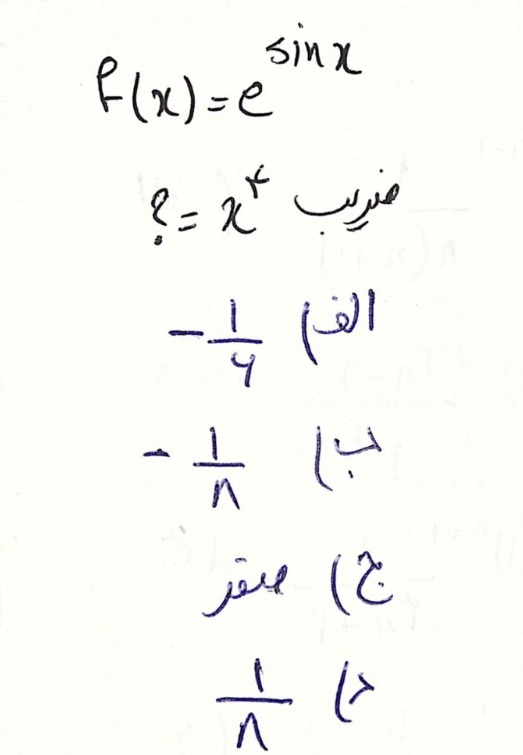 f(x) = e^sin x
ضریب x^۴ = ?
الف) -۱/۶
ب) -۱/۸
ج) صفر
د) ۱/۸